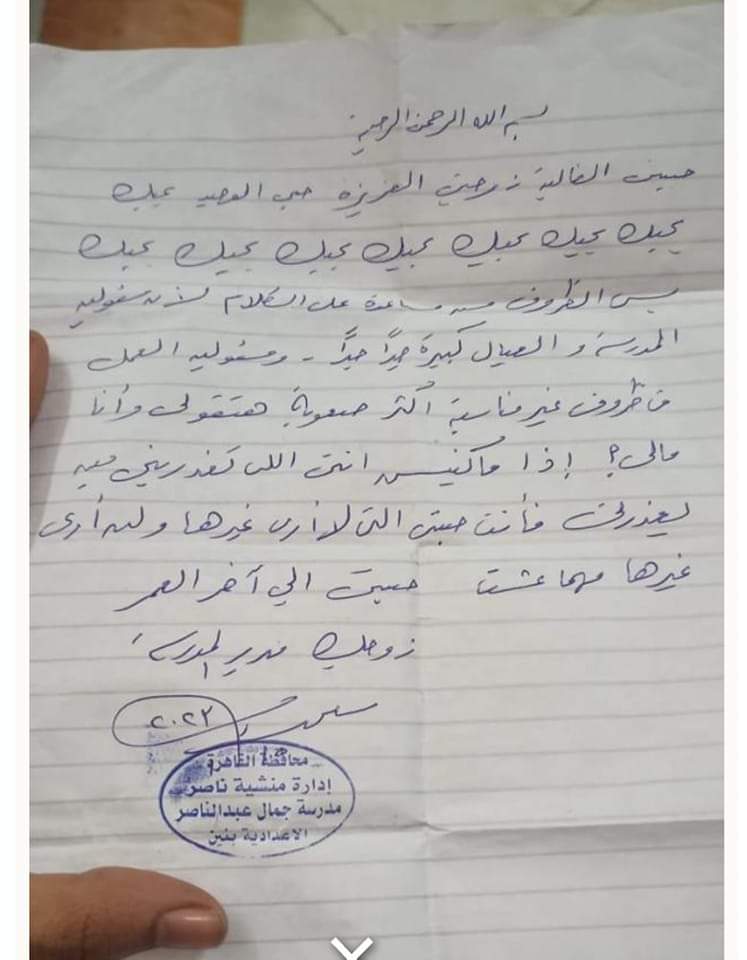 بسم الله الرحمن الرحيم
حبيبتي الغالية زوجتي العزيزة حبي الوحيد بحبك
بحبك بحبك بحبك بحبك بحبك بحبك بحبك
بس الظروف مش مساعدة على الكلام لأن مسئوليه
المدرسة و العيال كبيرة جدًا جدًا - ومسئوليه العمل
في ظروف غير مناسبة أكثر صعوبة هتقولى وأنا
مالى؟ إذا ماكنتيش انتى اللى تعذرينى مين
يعذرنى فأنت حبيبتى التى لا أرى غيرها ولن أرى
غيرها مهما عشت حبيبتى الي آخر العمر
زوجك مدير المدرسة
٢٠٢٣
محافظة القاهرة
إدارة منشية ناصر
مدرسة جمال عبدالناصر
الاعدادية بنين